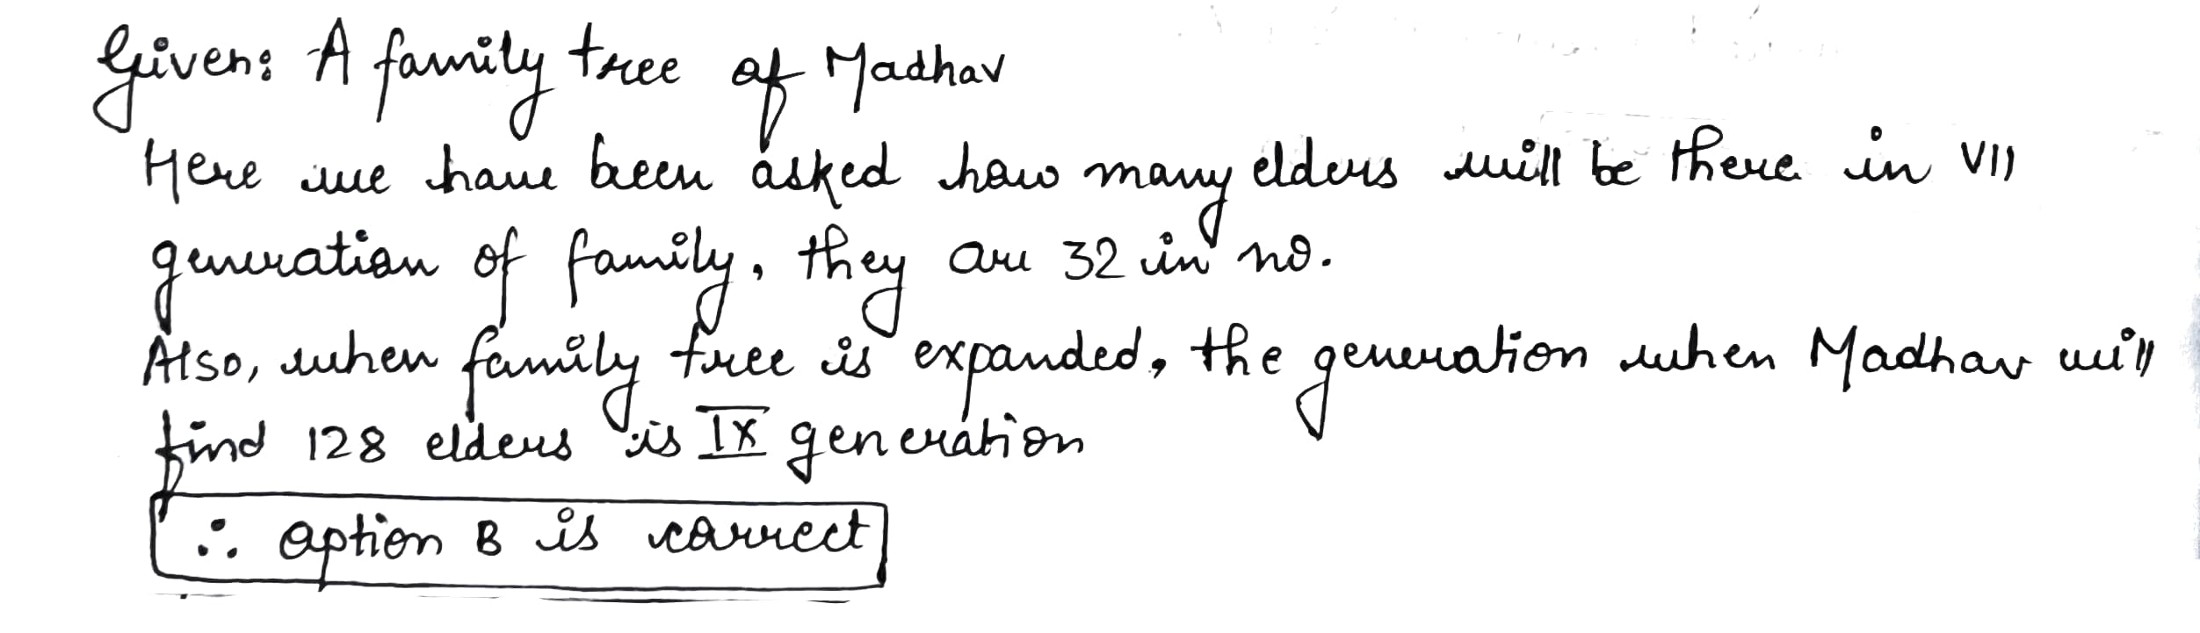 Given: A family tree of Madhav
Here we have been asked how many elders will be there in VII
generation of family, they are 32 in no.
Also, when family tree is expanded, the generation when Madhav will
find 128 elders is IX generation
∴ option B is correct